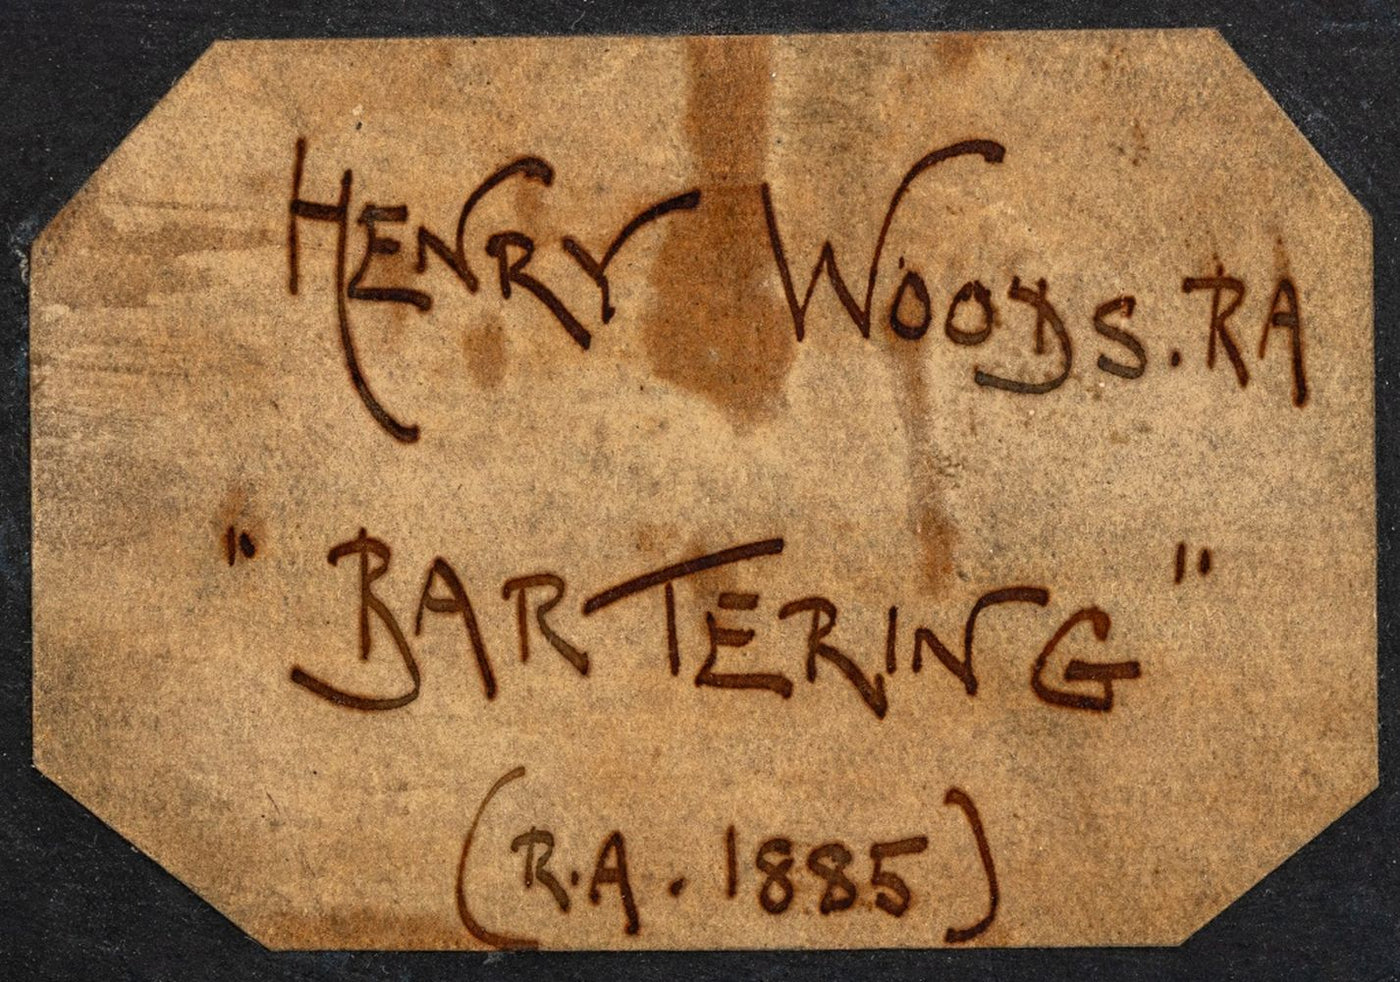 HENRY WOODS. RA
"BARTERING"
(R.A. 1885)